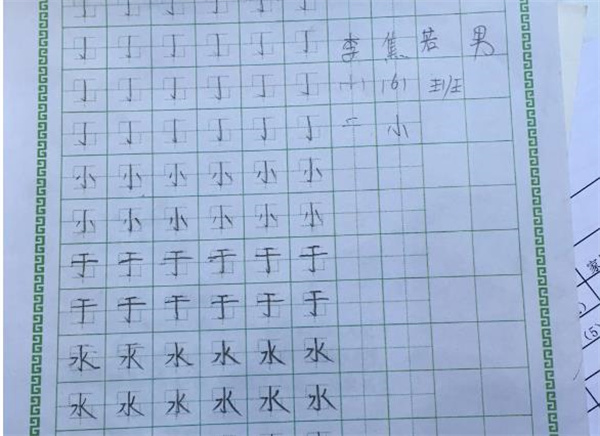 丁丁丁丁丁丁
丁丁丁丁丁丁李焦若男
丁丁丁丁丁丁(161班
丁丁丁丁丁丁于小
小小小小小小
小小小小小小
于于于于于于
于于于于于于
水水水水水水
水水水水水水
家
(5)